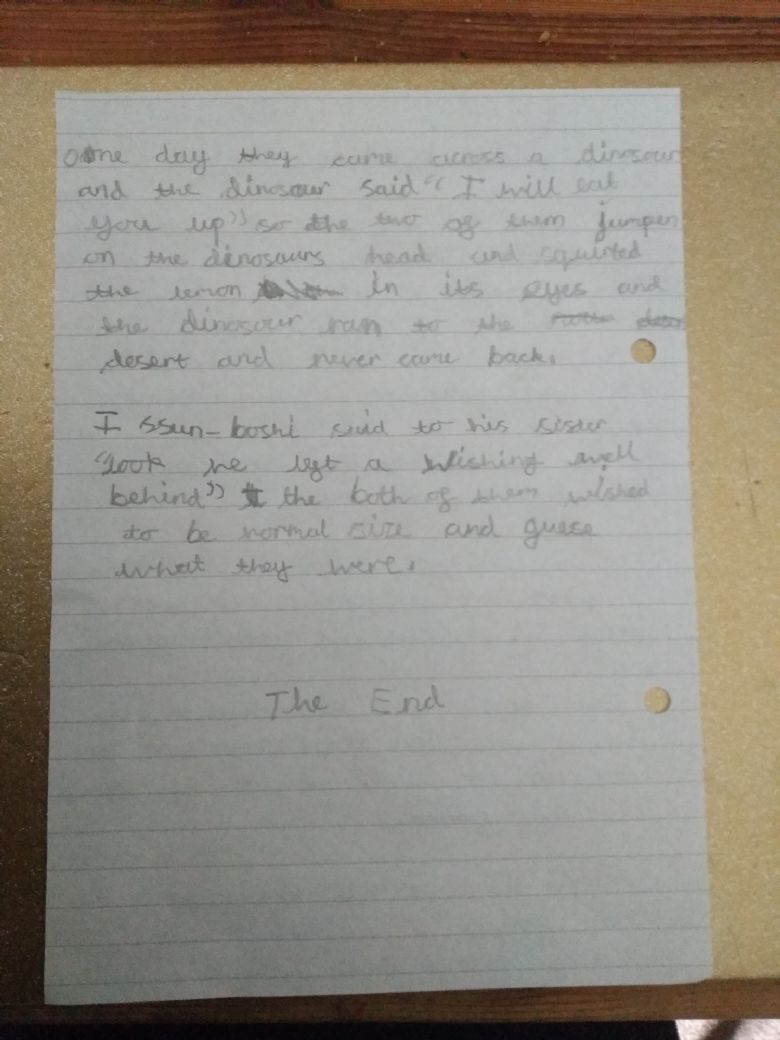 One day they came across a dinosaur
and the dinosaur said "I will eat
you up" so the two of them jumpen
on the dinosaurs head and squirted
the lemon in its eyes and
the dinosaur ran to the
desert and never came back.
Issun-boshi said to his sister
"look he left a wishing well
behind" the both of them wished
to be normal size and guese
what they were.
The End